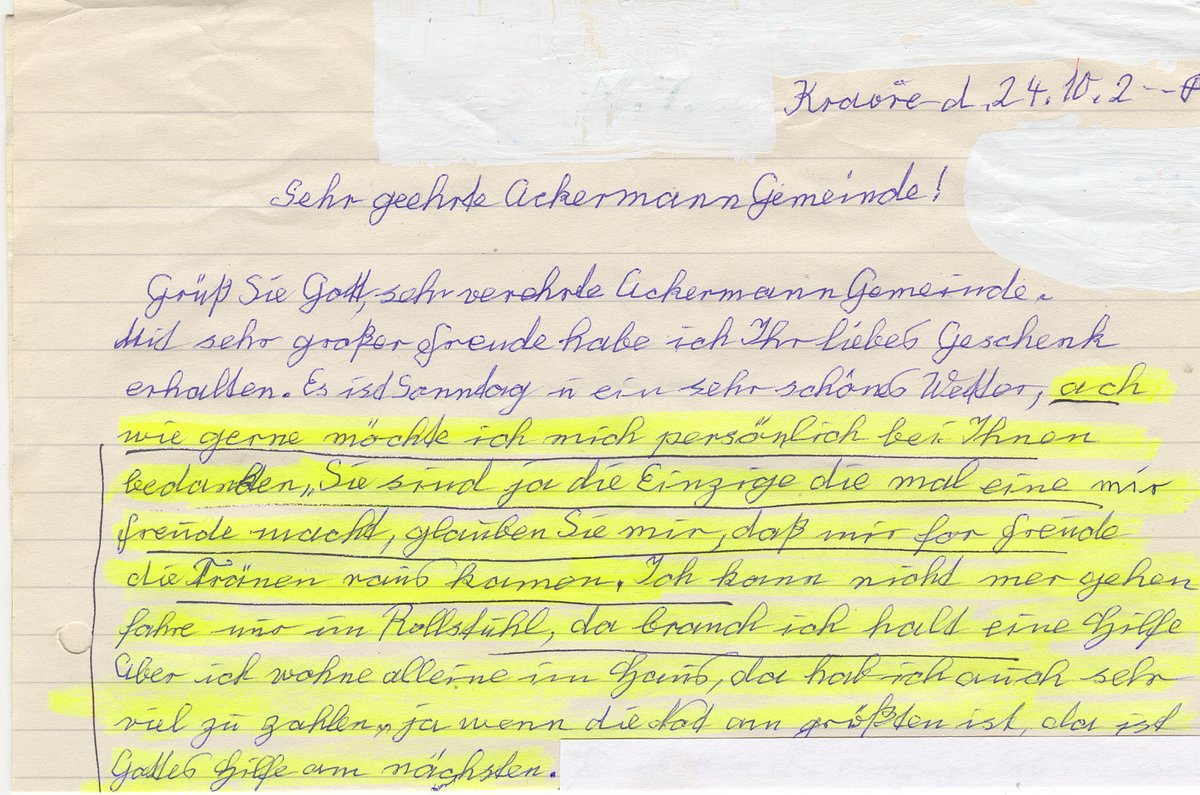 Kraoře d, 24.10.2
Sehr geehrte Ackermann Gemeinde!
Grüß Sie Gott, sehr verehrte Ackermann Gemeinde.
Mit sehr großer Freude habe ich Ihr liebes Geschenk
erhalten. Es ist Sonntag u ein sehr schönes Wetter, ach
wie gerne möchte ich mich persönlich bei Ihnen
bedanken,, Sie sind ja die Einzige die mal eine mir
freude macht, glauben Sie mir, daß mir for freude
die Tränen raus kamen. Ich kann nicht mer gehen
fahre nur im Rollstuhl, da brauch ich halt eine Hilfe
Aber ich wohne alleine im Haus, da hab ich auch sehr
viel zu zahlen,, ja wenn die Not am größten ist, da ist
Gottes Hilfe am nächsten.